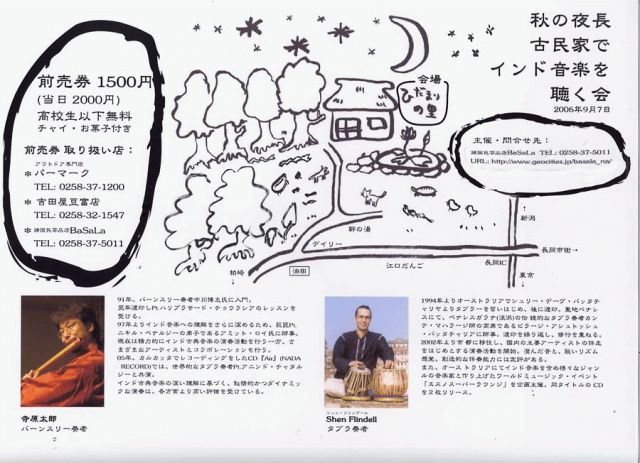 秋の夜長
古民家で
インド音楽を
聴く会
2006年9月7日
前売券 1500円
(当日 2000円)
高校生以下無料
チャイ・お菓子付き
前売券 取り扱い店:
アウトドア専門店
* パーマーク
TEL: 0258-37-1200
* 吉田屋豆富店
TEL: 0258-32-1547
* 諸国民芸品店BaSaLa
TEL: 0258-37-5011
会場
ひだまり
の里
主催・問合せ先:
諸国民芸品店BaSaLa TEL: 0258-37-5011
URL: http://www.geocities.jp/basala_na/
新潟
幹の湯
デイリー
長岡市街→
柏崎
油田
江口だんご
長岡IC
東京
91年、バーンスリー奏者中川博志氏に入門。
翌年渡印しPt.ハリプラサード・チョウラシアのレッスンを
受ける。
97年よりインド音楽への理解をさらに深めるため、巨匠Pt.
ニキル・ベナルジーの弟子であるアミット・ロイ氏に師事。
現在は精力的にインド古典音楽の演奏活動を行う一方、さ
まざまなアーティストとコラボレーションも行う。
05年、カルカッタでレコーディングをしたCD『Au』(NADA
RECORD)では、世界的なタブラ奏者Pt.アニンド・チャタル
ジーと共演。
インド古典音楽の深い理解に基づく、叙情的かつダイナミッ
クな演奏は、各方面より高い評価を受けている。
寺原太郎
バーンスリー奏者
1994年よりオーストラリアでシュリー・デーブ・バッタチ
ャリヤよりタブラーを習いはじめ、後に渡印。聖地ベナレ
スにて、ベナレスガラナ(流派)の伝統的なタブラ奏者カン
テ・マハラージ師の高弟であるビラージ・アシュトッシュ
・バッタチャリアに師事。渡印を繰り返し、修行を重ねる。
2002年より京都に移住し、国内の主要アーティストの伴走
をはじめとする演奏活動を開始。澄んだ音と、鋭いリズム
感覚、創造的な伴奏能力には定評がある。
また、オーストラリアにてインド音楽を含め様々なジャン
ルの音楽家と作り上げたワールドミュージック・イベント
「エスノスーパーラウンジ」を企画主催。同タイトルのCD
を2枚リリース。
Shen Flindell
タブラ奏者